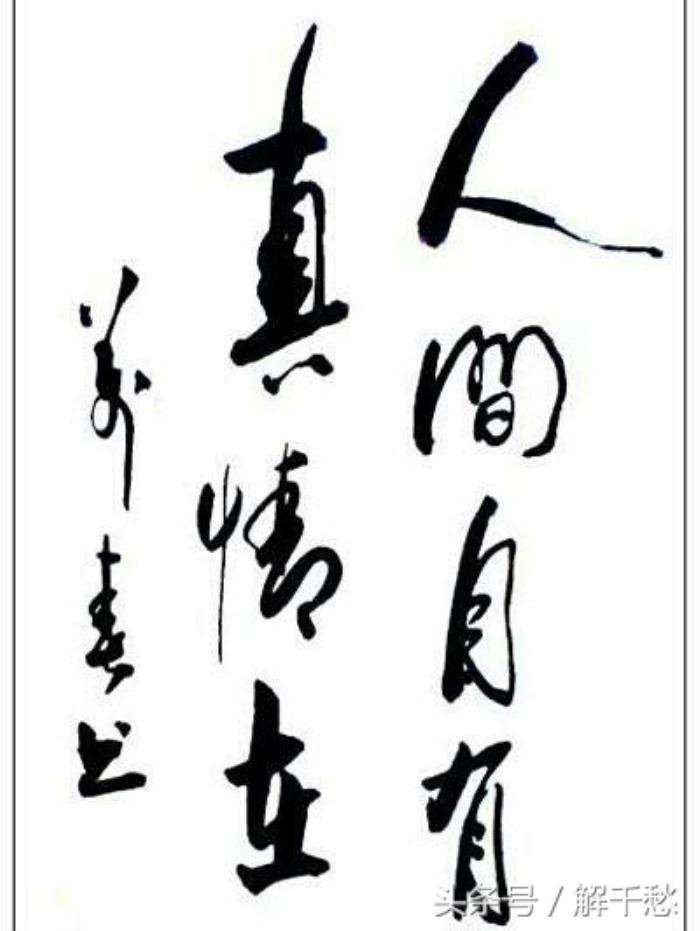 人間自有
真情在
書
头条号 / 解千愁